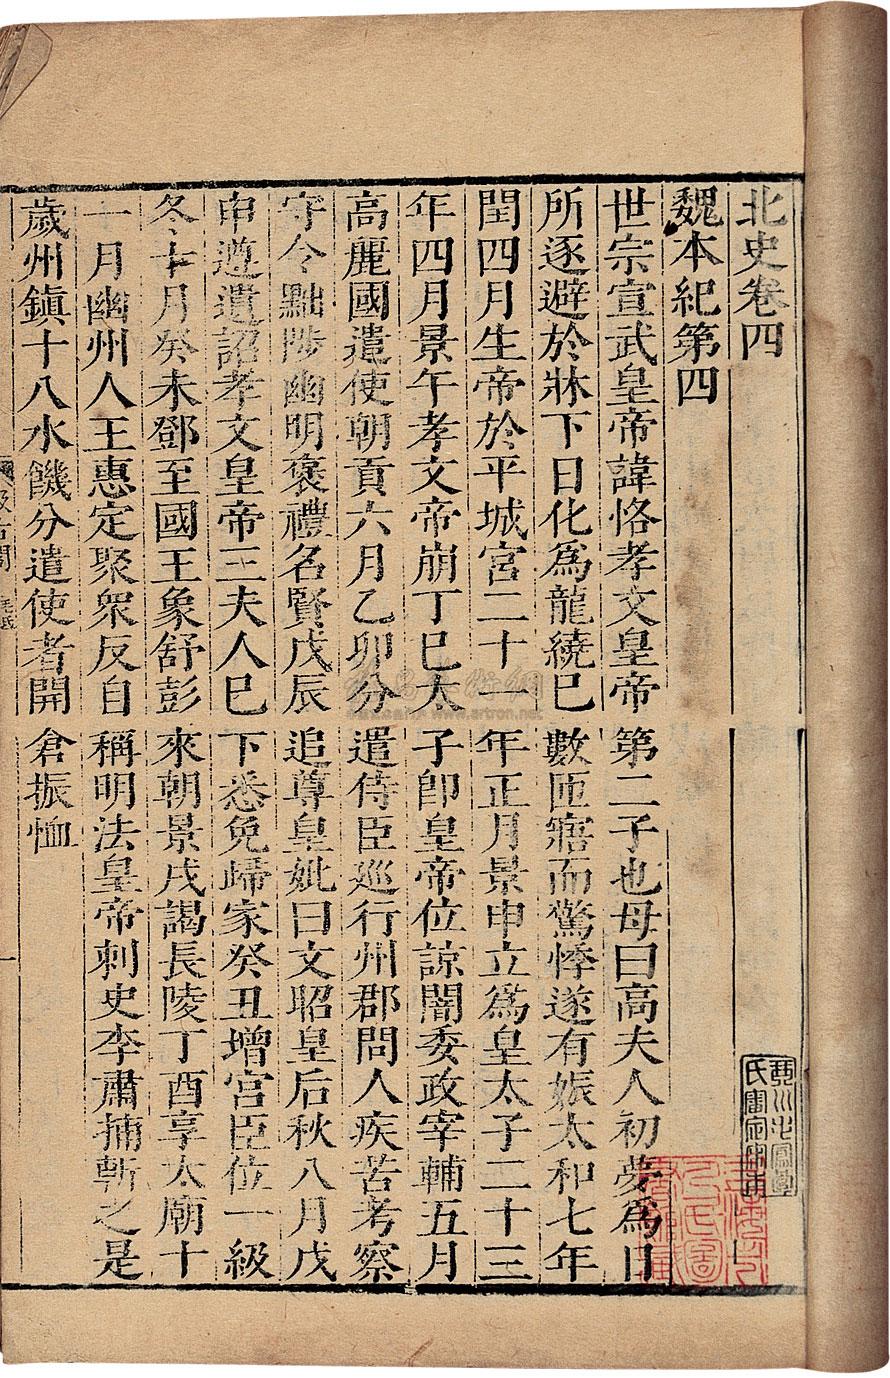 北史卷四
魏本紀第四
世宗宣武皇帝諱恪孝文皇帝第二子也母曰高夫人初夢爲日
所逐避於牀下日化爲龍繞已數匝寤而驚悸遂有娠太和七年
閏四月生帝於平城宮二十一年正月景申立爲皇太子二十三
年四月景午孝文帝崩丁巳太子卽皇帝位諒闇委政宰輔五月
高麗國遣使朝貢六月乙卯分遣侍臣巡行州郡問人疾苦考察
守令黜陟幽明褒禮名賢戊辰追尊皇妣曰文昭皇后秋八月戊
申遵遺詔孝文皇帝三夫人巳下悉免歸家癸丑增宮臣位一級
冬十月癸未鄧至國王象舒彭來朝景戌謁長陵丁酉享太廟十
一月幽州人王惠定聚衆反自稱明法皇帝刺史李肅捕斬之是
歲州鎮十八水饑分遣使者開倉振恤
汲古閣
毛氏
一
www.artron.net